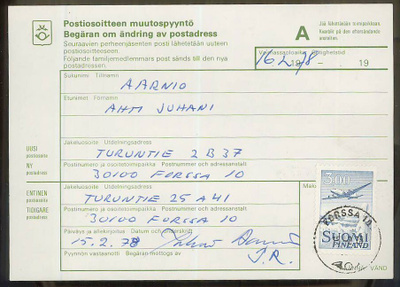 Postiosoitteen muutospyyntö
Begäran om ändring av postadress
Seuraavien perheenjäsenten posti lähetetään uuteen
postiosoitteeseen
Följande familjemedlemmars post sänds till den nya
postadressen.
A
Jää lähettävään toimipaikkaan.
19
Sukunimi Tillnamn
AARNIO
Etunimet Förnamn
AHTI JUHANI
UUSI
postiosoite
NY
postadress
Jakeluosoite Utdelningsadress
TURUNTIE 2 B 37
Postinumero ja osoitetoimipaikka Postnummer och adressanstalt
30100 FORSSA 10
ENTINEN
postiosoite
TIDIGARE
postadress
Jakeluosoite Utdelningsadress
TURUNTIE 25 A 41
Postinumero ja osoitetoimipaikka Postnummer och adressanstalt
30100 FORSSA 10
Päiväys ja allekirjoitus Datum och underskrift
15.2.78
Pyynnön vastaanotti Begäran mottogs av
FORSSA 10
SUOMI
FINLAND